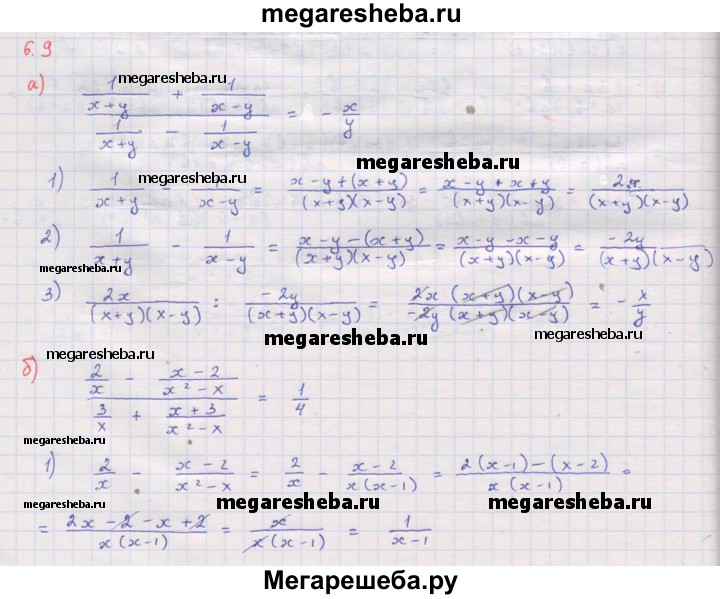 megaresheba.ru
6.9
а)
megaresheba.ru
(1/(x+y) + 1/(x-y)) / (1/(x+y) - 1/(x-y)) = - x/y
megaresheba.ru
megaresheba.ru
1) 1/(x+y) - 1/(x-y) = (x-y+(x+y))/((x+y)(x-y)) = (x-y+x+y)/((x+y)(x-y)) = 2x/((x+y)(x-y))
2) 1/(x+y) - 1/(x-y) = (x-y-(x+y))/((x+y)(x-y)) = (x-y-x-y)/((x+y)(x-y)) = -2y/((x+y)(x-y))
megaresheba.ru
3) 2x/((x+y)(x-y)) : -2y/((x+y)(x-y)) = 2x(x+y)(x-y)/(-2y(x+y)(x-y)) = - x/y
megaresheba.ru
megaresheba.ru
megaresheba.ru
б)
(2/x - (x-2)/(x²-x)) / (3/x + (x+3)/(x²-x)) = 1/4
megaresheba.ru
1) 2/x - (x-2)/(x²-x) = 2/x - (x-2)/(x(x-1)) = (2(x-1)-(x-2))/(x(x-1)) =
megaresheba.ru
megaresheba.ru
megaresheba.ru
= (2x-2-x+2)/(x(x-1)) = x/(x(x-1)) = 1/(x-1)
Мегарешеба.ру